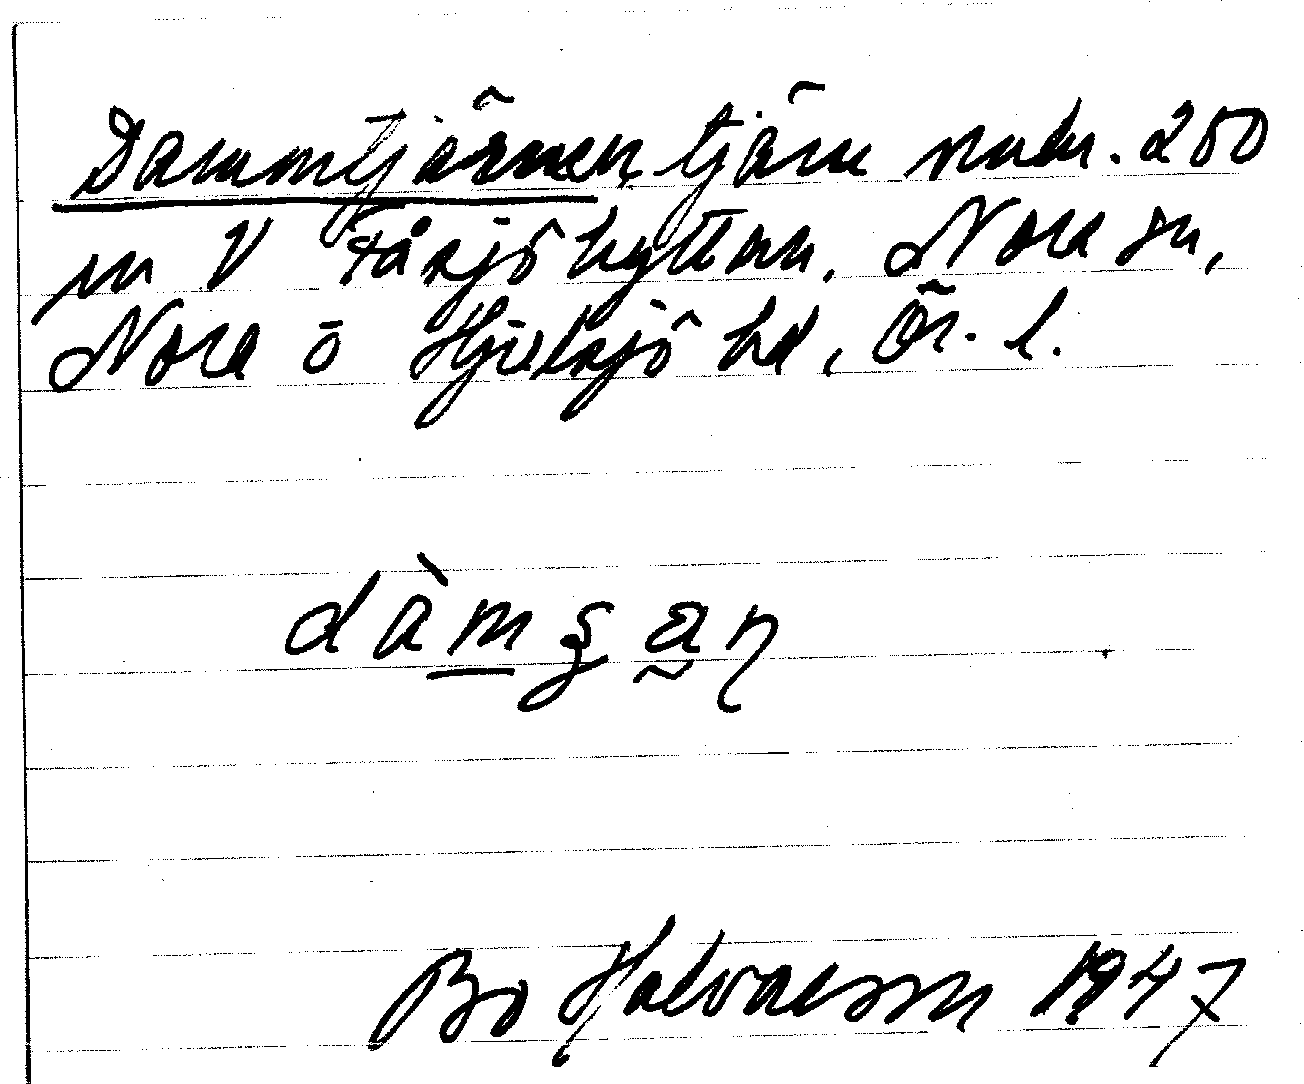 Dammtjärnen, tjärn mdr. 250
m V Fåsjöhyttan, Nora sn,
Nora o Hjulsjö hd, Ör. l.
Bo Halvarson 1947